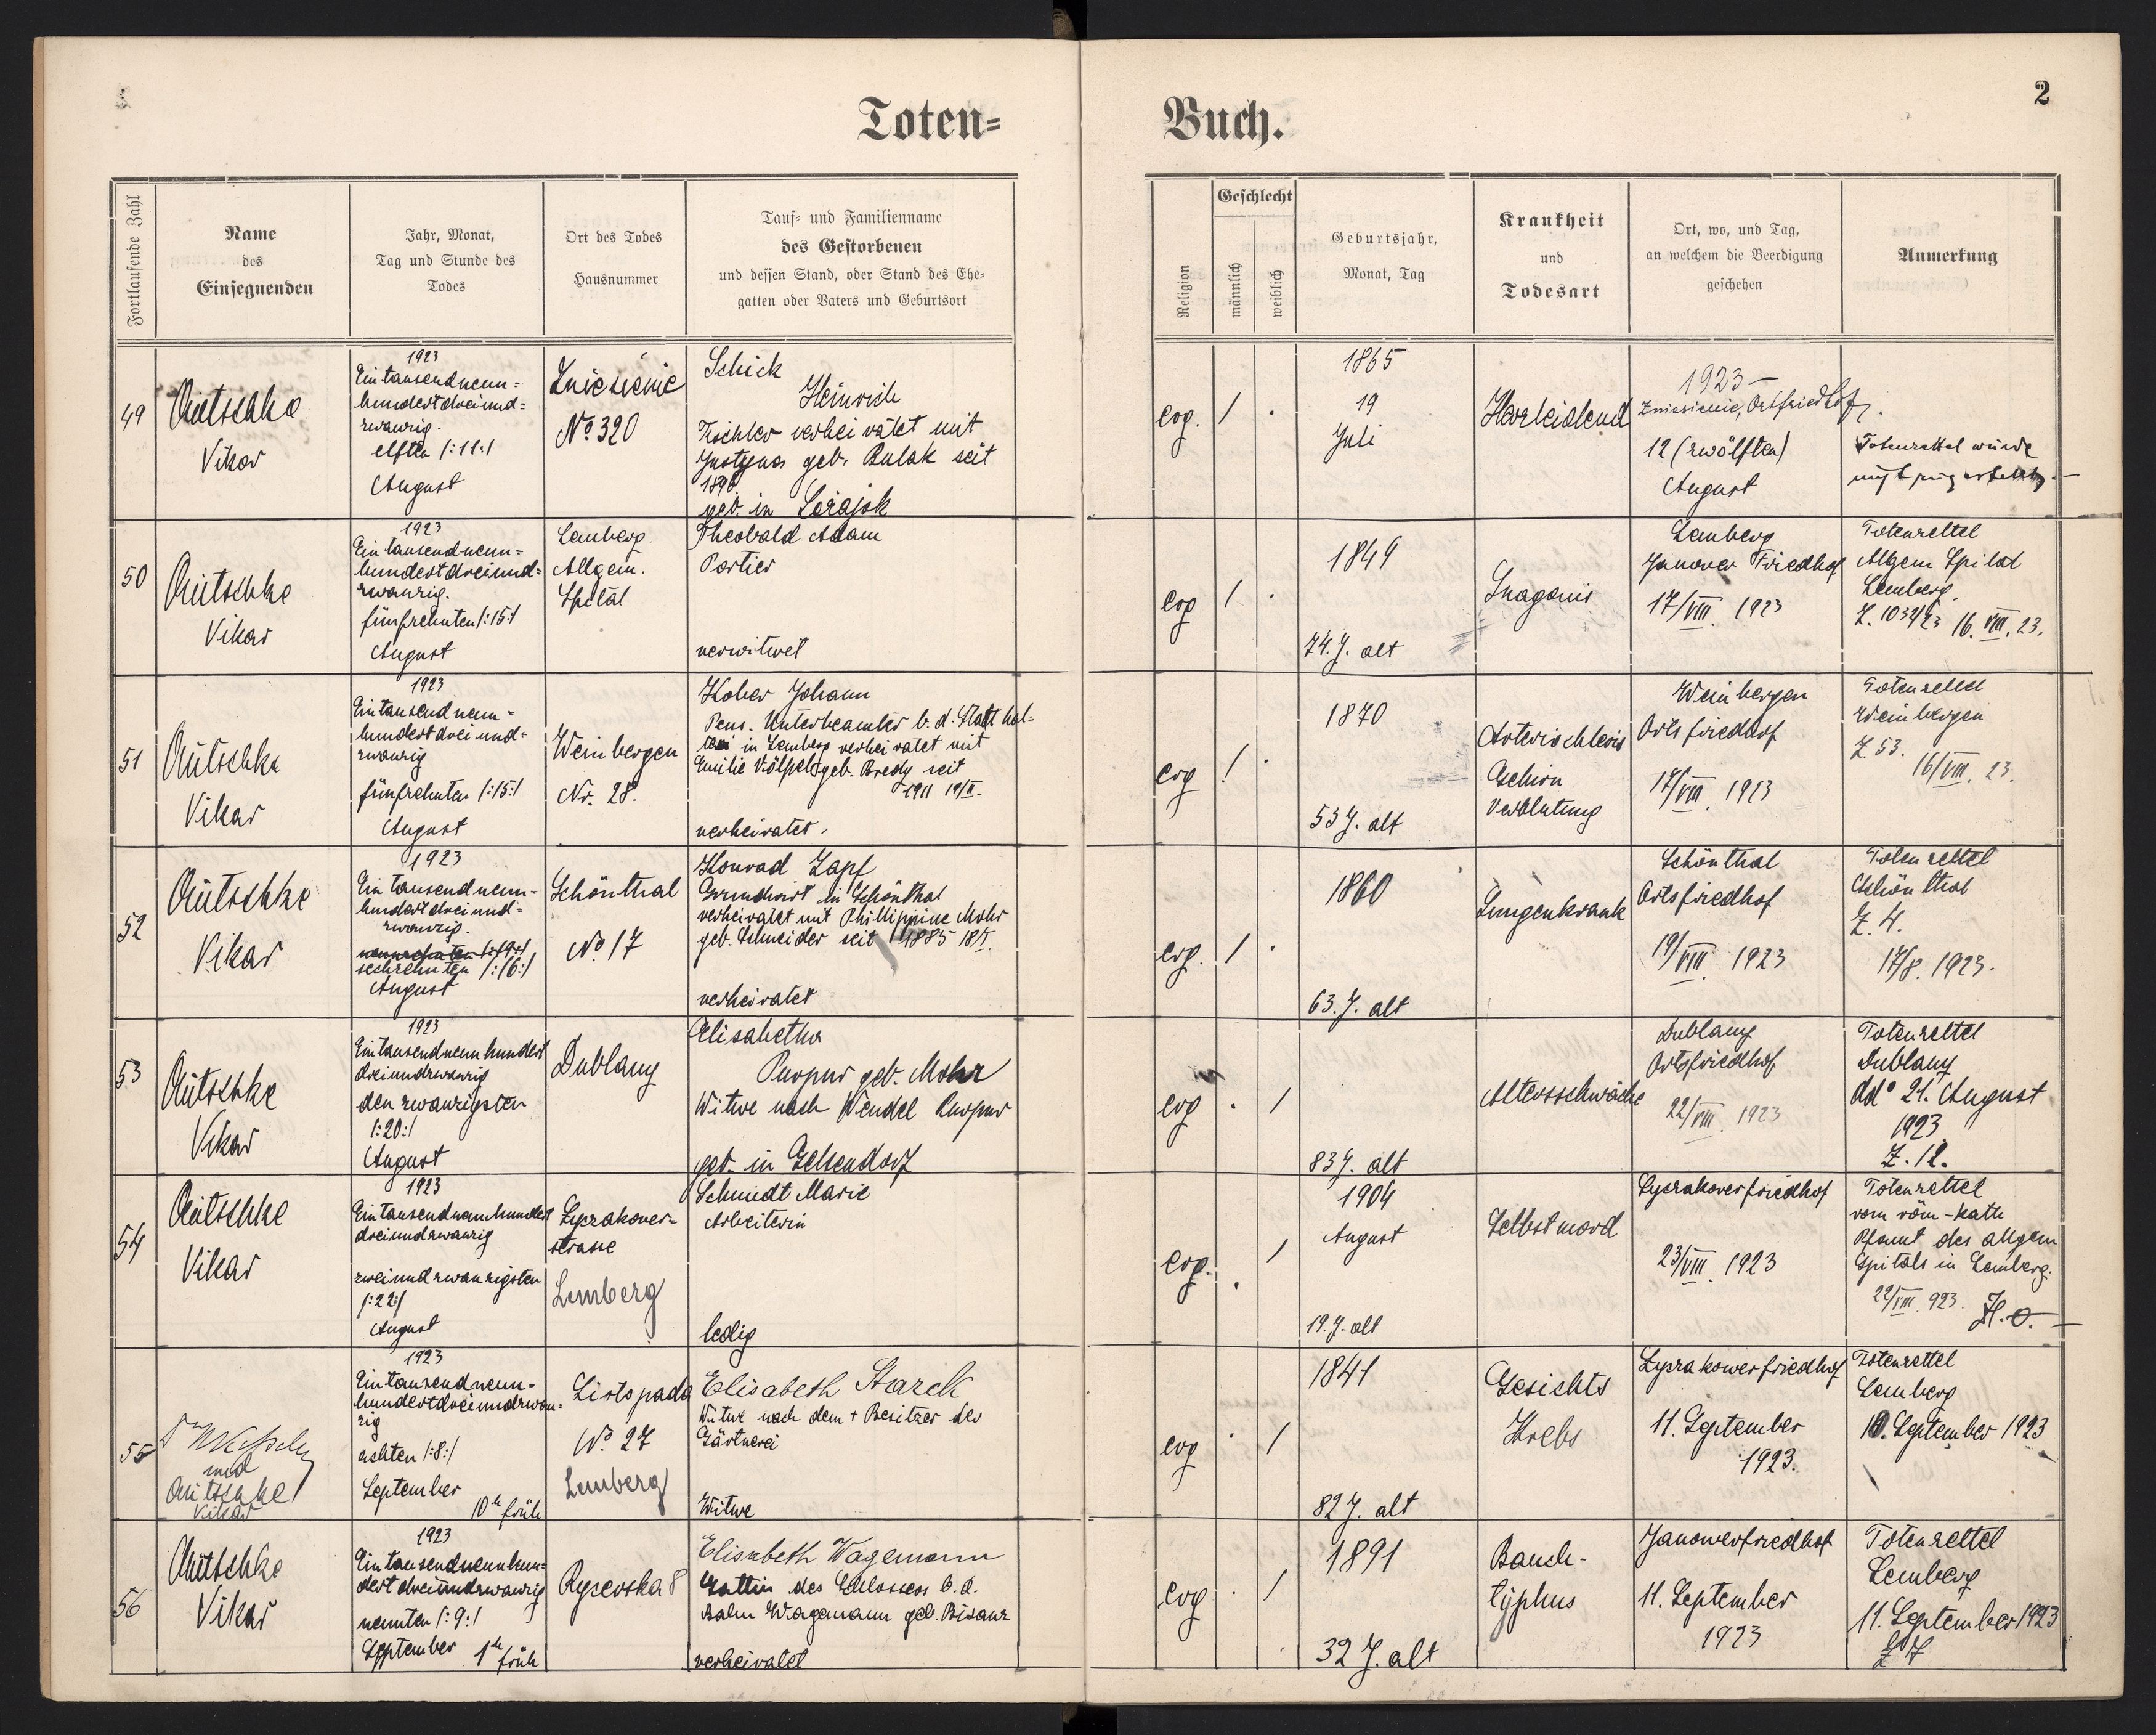 Toten=
Buch.
2
Fortlaufende Zahl
Name
des
Einsegnenden
Jahr, Monat,
Tag und Stunde des
Todes
Ort des Todes
Hausnummer
Tauf= und Familienname
des Gestorbenen
und dessen Stand, oder Stand des Ehe=
gatten oder Vaters und Geburtsort
Religion
Geschlecht
männlich
weiblich
Geburtsjahr,
Monat, Tag
Krankheit
und
Todesart
Ort, wo, und Tag,
an welchem die Beerdigung
geschehen
Anmerkung
49
Vikar
1923
Ein tausendneun=
hundertdreiund=
zwanzig.
elften /:11:/
August
Zniesienie
No. 320
Schick
Heinrich
Tischler verheiratet mit
Justyna geb. Bulak seit
geb. in
evg.
/
.
1865
19
Juli
Herzleidend
1923 —
Zniesienie, Ortsfriedhof
12 (zwölften)
August
Totenzettel wurde
50
Vikar
1923
Ein tausendneun=
hundertdreiund=
zwanzig.
fünfzehnten /:15:/
August
Lemberg.
Allgem.
Spital
Theobald Adam
Portier
verwitwet
evg
/
.
1849
74. J. alt
Lemberg
Janower Friedhof
17/VIII. 1923
Totenzettel
Allgem Spital
Lemberg.
16. VIII. 23.
51
Vikar
1923
Ein tausend neun=
hundertdreiund=
zwanzig
fünfzehnten /:15:/
August
Weinbergen
Nr. 28.
Kober Johann
Pens. Unterbeamter b. d. Statthal=
terei in Lemberg verheiratet mit
Emilie Völpel geb. Bredy seit
1911
verheiratet.
evg
/
.
1870
53 J. alt
Gehirn
Verblutung
Weinbergen
Ortsfriedhof
17/VIII. 1923
Totenzettel
Weinbergen
Z. 53.
16/VIII. 23.
52
Vikar
1923
Ein tausendneun=
hundertdreiund=
zwanzig.
neunzehnten /:19:/
sechzehnten /:16:/
August
Schönthal
No. 17
Konrad Zapf
Grundwirt in Schönthal
verheiratet mit Phillippine Mohr
geb. Schneider seit 1885
verheiratet
evg.
/
.
1860
63. J. alt
Lungenkrank
Schönthal
Ortsfriedhof
19/VIII. 1923
Totenzettel
Schönthal
Z. 4.
17/8. 1923.
53
Vikar
1923
Ein tausendneunhundert
dreiundzwanzig
den zwanzigsten
/:20:/
August
Dublany
Elisabetha
geb. Mohr
Witwe nach Wendel
geb. in Gelsendorf
evg
.
/
83 J. alt
Altersschwäche
Dublany
Ortsfriedhof
22/VIII. 1923
Totenzettel
Dublany
ddo 21. August
1923.
Z. 12.
54
Vikar
1923
Ein tausendneunhundert
dreiundzwanzig
zweiundzwanzigsten
/:22:/
August
Lyczakower=
strasse
Lemberg
Schmidt Marie
Arbeiterin
ledig
evg.
.
/
1904
August
19. J. alt
Selbstmord
Lyczakoverfriedhof
23/VIII. 1923
Totenzettel
vom röm-kath
Pfamt des allgem
Spitals in Lemberg.
22/VIII. 923.
55
und
Vikar
1923
Ein tausendneun=
hundertdreiundzwan=
zig
achten /:8:/
September
10h früh
Listopada
No. 27
Lemberg
Elisabeth Starck
Witwe nach dem + Besitzer der
Gärtnerei
Witwe
evg
.
/
1841
82 J. alt
Gesichts
Krebs
Lyczakowerfriedhof
11. September
1923.
Totenzettel
Lemberg
10. September 1923
56
Vikar
1923
Ein tausendneunhun=
dertdreiundzwanzig
neunten /:9:/
September 1h früh
Elisabeth Wagemann
Gattin des Schlossers b. d.
Bahn Wagemann geb. Bisanz
verheiratet
evg
.
/
1891
32 J. alt
Bauch-
typhus
Janowerfriedhof
11. September
1923
Totenzettel
Lemberg
11. September 1923